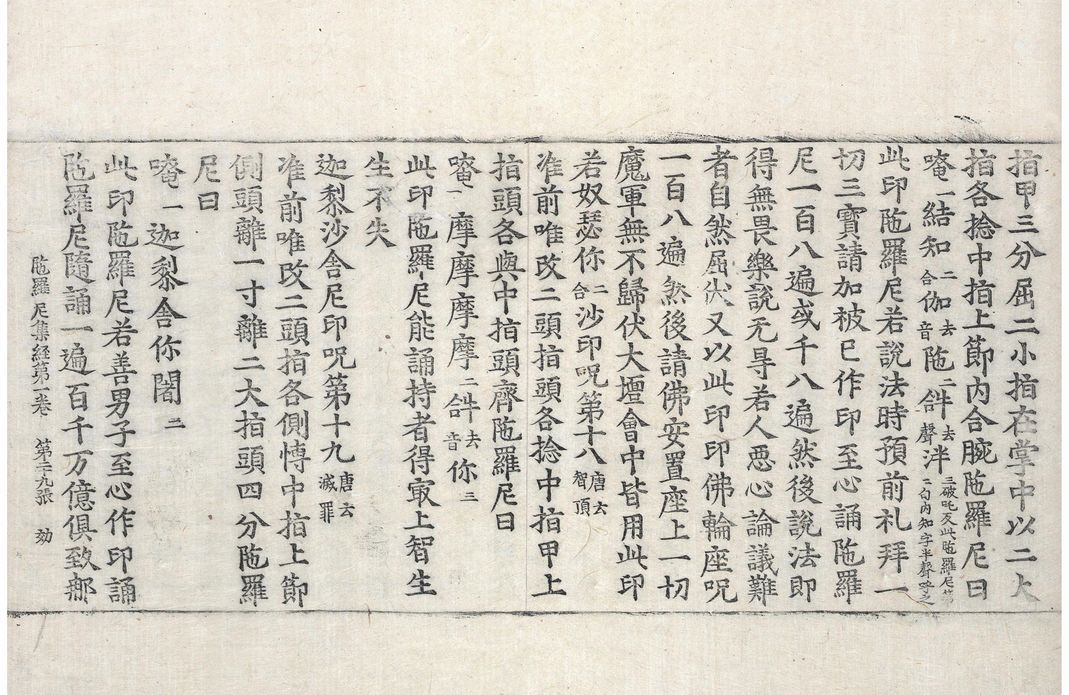 指甲三分屈二小指在掌中以二大
指各捻中指上節内合腕陁羅尼曰
唵一結知二合伽去音陁二䤈去聲泮三破吒反此陁羅尼第二句内知字半聲呼之
此印陁羅尼若說法時預前礼拜一
切三寶請加被已作印至心誦陁羅
尼一百八遍或千八遍然後說法即
得無畏樂說无㝵若人惡心論議難
者自然屈伏又以此印印佛輪座呪
一百八遍然後請佛安置座上一切
魔軍無不歸伏大壇會中皆用此印
若奴瑟你二合沙印呪第十八唐云智頂
准前唯改二頭指頭各捻中指甲上
指頭各與中指頭齊陁羅尼曰
唵一摩摩摩摩二䤈去音你三
此印陁羅尼能誦持者得㝡上智生
生不失
迦黎沙舎尼印呪第十九唐云滅罪
准前唯改二頭指各側愽中指上節
側頭離一寸離二大指頭四分陁羅
尼曰
唵一迦黎舎你闇二
此印陁羅尼若善男子至心作印誦
陁羅尼隨誦一遍百千万億俱致𨚗
陁羅尼集経第一巻 第二十九張 効